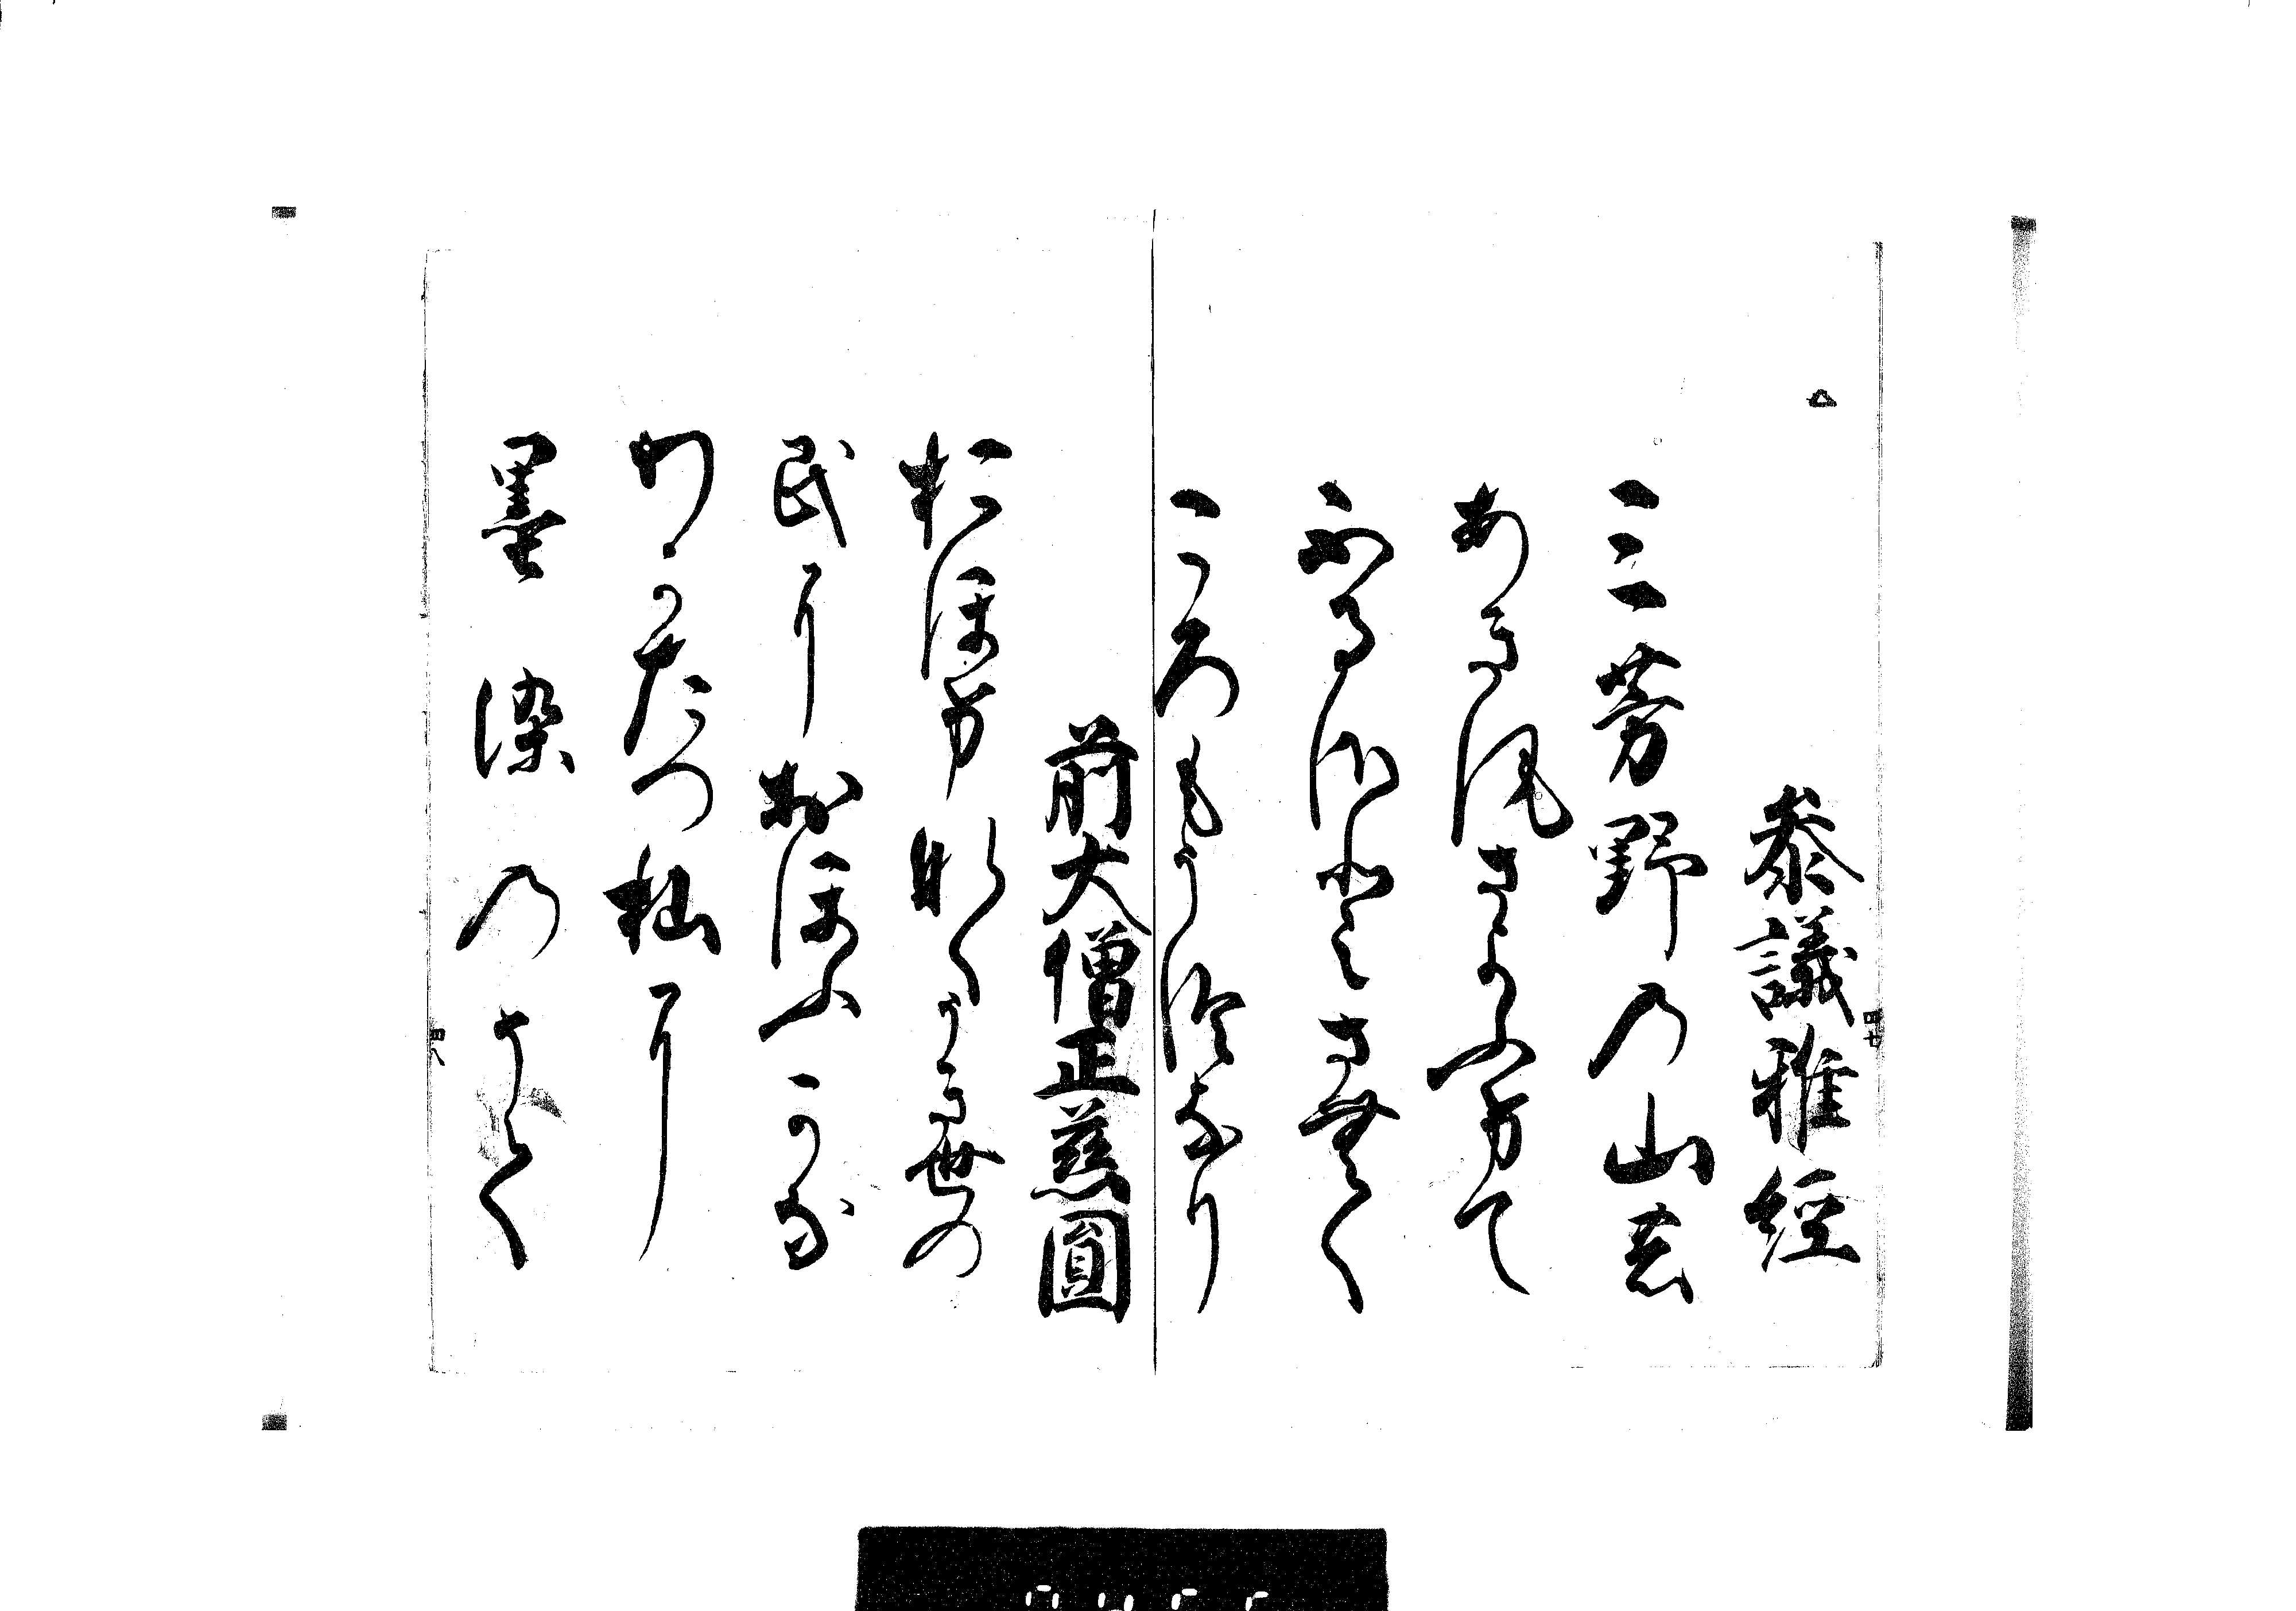 参議雅経
三芳野乃山の
あき風さよふけて
ふるさとさむく
ころもうつなり
四七
前大僧正慈圓
おほけなくうき世の
民におほふかな
わかたつ杣に
墨染乃そて
四八